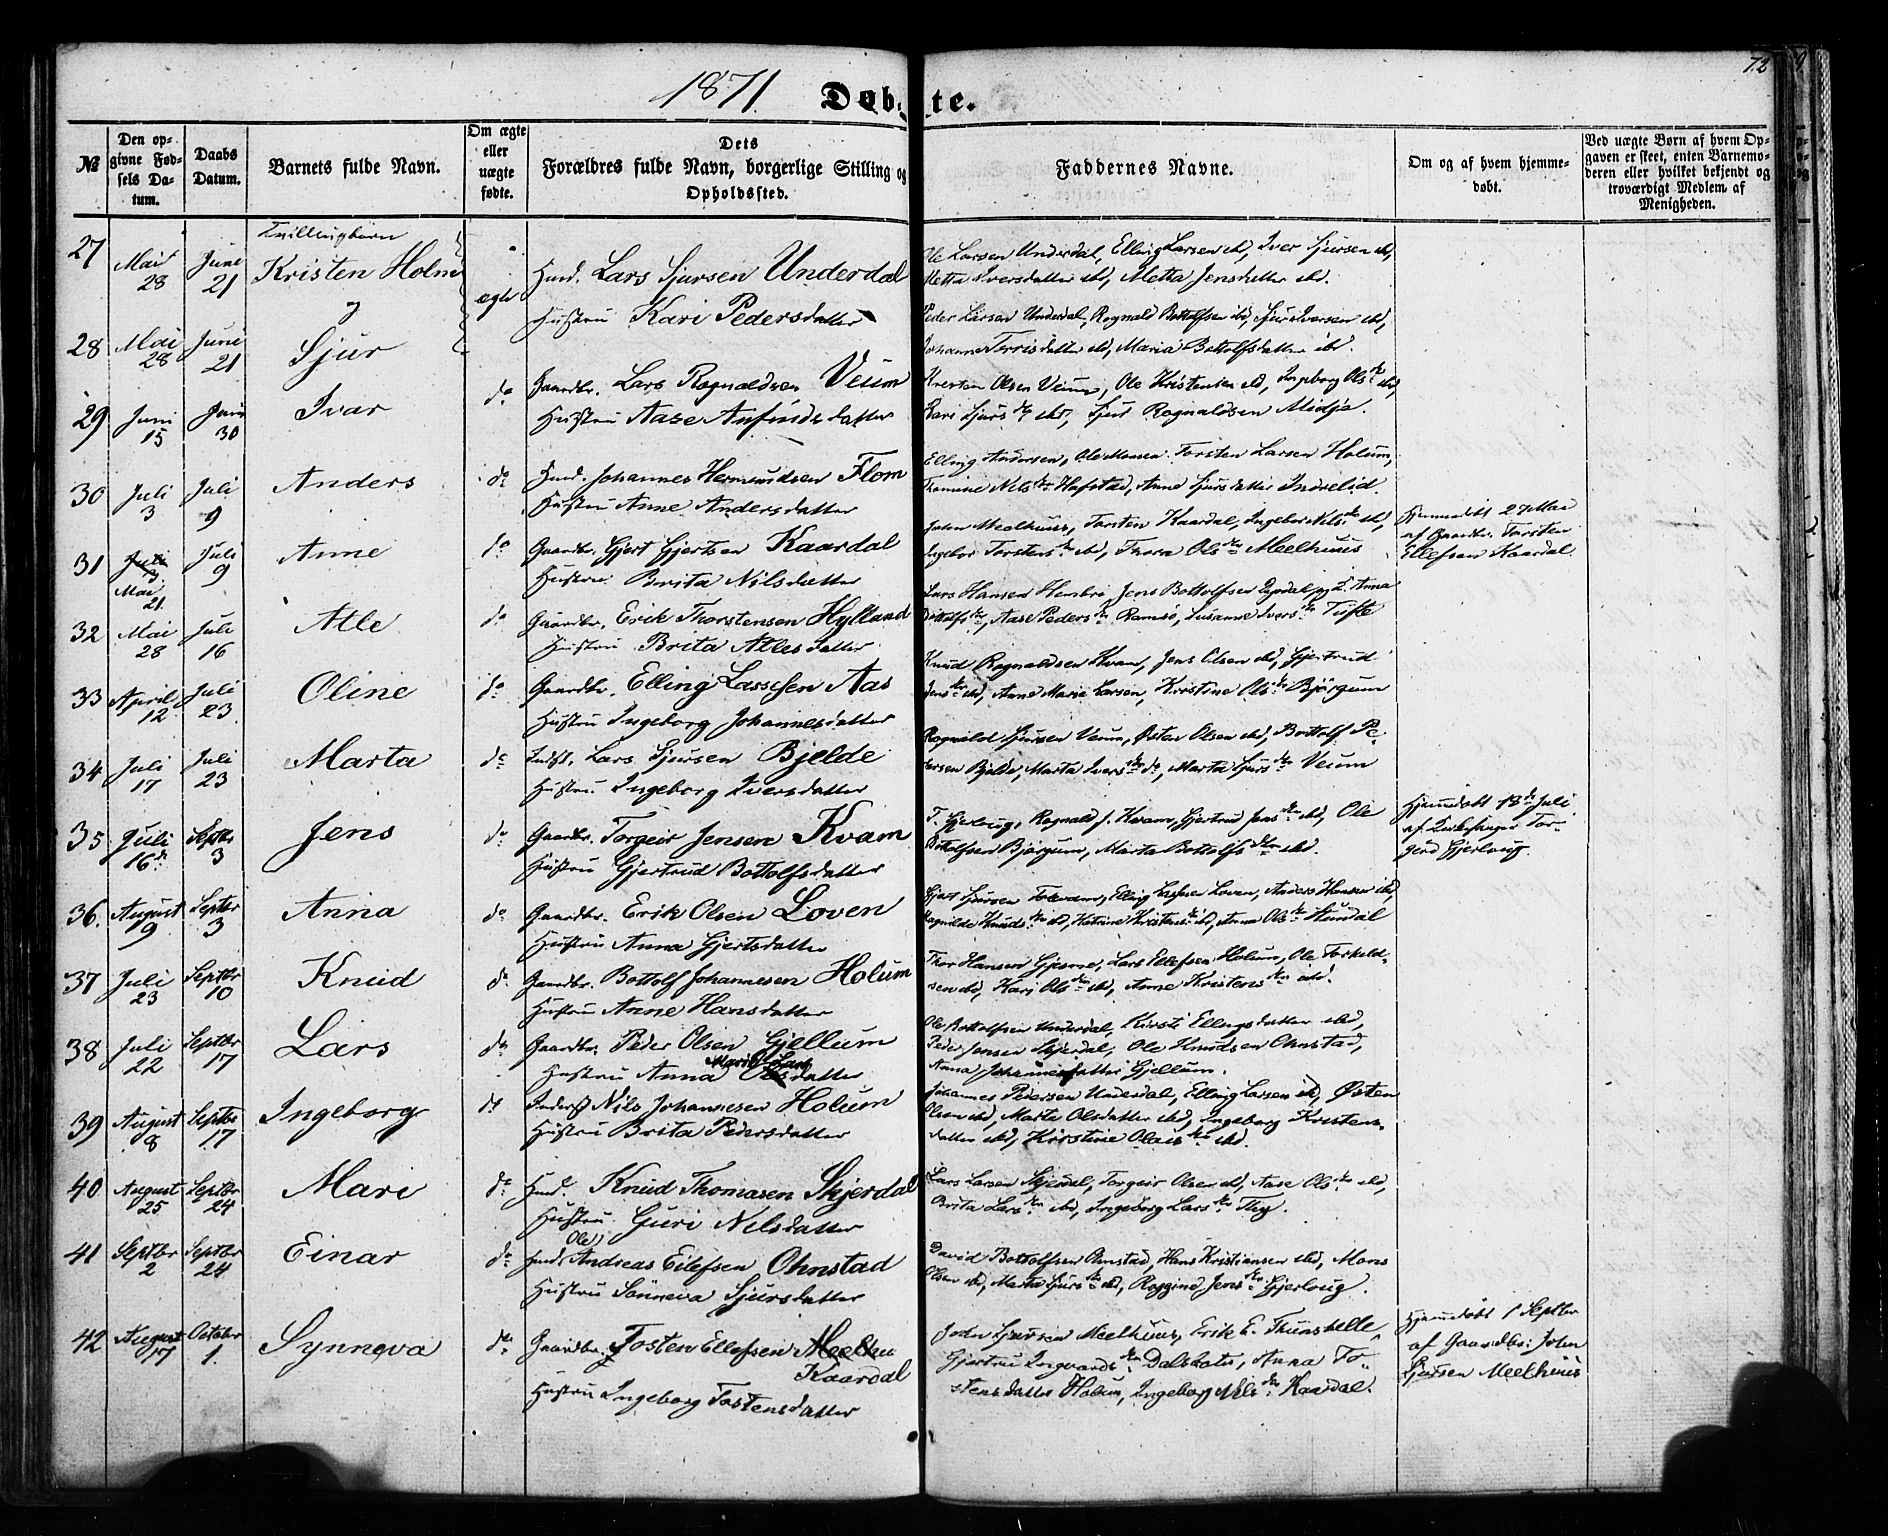 1871. Døbte. 72
№
Den opgivne Fødsels Datum.
Daabs Datum.
Barnets fulde Navn.
Om ægte eller uægte fødte.
Dets Forældres fulde Navn, borgerlige Stilling og Opholdssted.
Faddernes Navne.
Om og af hvem hjemmedøbt.
Ved uægte Børn af hvem Opgaven er skeet, enten Barnemoderen eller hvilket bekjendt og troværdigt Medlem af Menigheden.
Tvillingbørn
27 Mai 28 Juni 21 Kristen Holm ægte Huusm. Lars Sjursen Underdal
Hustru Kari Pedersdatter
Ole Larsen Underdal, Elling Larsen ibd, Iver Sjursen ibd,
Metta Iversdatter ibd, Metta Jensdatter ibd.
og
28 Mai 28 Juni 21 Sjur
Peder Larsen Underdal, Rognald Bottolfsen ibd, Sjur Iversen ibd,
Johanne datter ibd, Maria Bottolfsdatter ibd.
29 Juni 15 Juni 30 Ivar do Gaardbr. Lars Rognaldsen Veum
Hustru Aase Anfindsdatter
Kresten Olsen Veum, Ole Kristensen ibd, Ingeborg Olsdtr ibd,
Kari Sjursdtr ibd, Sjur Rognaldsen Midja.
30 Juli 3 Juli 9 Anders do Huusm. Johannes Hermundsen Flom
Hustru Anne Andersdatter
Elling Andersen, Ole Monsen Torsten Larsen Holum,
Nilsdtr Hafstad, Anne Sjursdatter Indrelid.
31 Juli 3. Mai 21. Juli 9 Anne do Gaardbr. Gjert Gjertsen Kaardal
Hustru Brita Nilsdatter
John Meelhuus, Torsten Kaardal, Ingebor Nilsdtr ibd,
Ingebor Torstensdtr ibd, Thora Olsdtr Meelhuus
Hjemmedøbt 27 Mai
af Gaardbr. Torsten
Ellefsen Kaardal.
32 Mai 28 Juli 16 Atle do Gaardbr. Erik Thorstensen Hylland
Hustru Brita Atlesdatter
Lars Hansen Hembri Jens Bottolfsen Anna
Bottolfsdtr, Aase Pedersdtr Ramsø, Susanne Iversdtr Tufte
33 April 12 Juli 23 Oline do Gaardbr. Elling Lassesen Aas
Hustru Ingeborg Johannesdatter
Knud Rognaldsen Kvam, Jens Olsen ibd, Gjertrud
Jensdtr ibd, Anne Marie Larsen, Kristine Olsdtr Bjørgum
34 Juli 17 Juli 23 Marta do Inderst. Lars Sjursen Bjelde
Hustru Ingeborg Iversdatter
Rognald Sjursen Veum, Østen Olsen ibd, Bottolf Pe-
dersen Bjelde, Marta Iversdtr do, Marta Sjursdtr Veum
35 Juli 16de Septbr 3 Jens do Gaardbr. Torgeir Jensen Kvam
Hustru Gjertrud Bottolfsdatter
T. Gjerløug, Rognald J. Kvam, Gjertrud Jensdtr ibd, Ole
Bottolfsen Bjørgum, Marta Bottolfsdtr ibd.
Hjemmedøbt 18de Juli
af Kirkesanger Tor-
gerd Gjerløug.
36. August 9 Septbr 3 Anna do Gaardbr. Erik Olsen Loven
Hustru Anna Gjertsdatter
Gjert Sjursen Elling Lassesen Loven, Anders Hansen ibd,
Ragnilde Knudsdtr ibd, Katrine Kristensdtr ibd, Anna Olsdtr Stundal
37 Juli 23 Septbr 10 Knud do Gaardbr. Bottolf Johannesen Holum
Hustru Anne Hansdatter
Thor Hansen Gjesme, Lars Ellefsen Holum, Ole Torkild-
sen ibd, Kari Olsdtr ibd, Anne Kristensdtr ibd.
38 Juli 22 Septbr 17 Lars do Gaardbr. Peder Olsen Gjellum
Hustru Anna Maria Larsdatter
Ole Bottolfsen Underdal, Kirsti Ellingsdatter ibd,
Peder Jensen Skjerdal, Ole Knudsen Ohnstad,
Anna Johannesdatter Gjellum.
39 August 8 Septbr 17 Ingeborg do Inderst Nils Johannesen Holum
Hustru Brita Pedersdatter
Johannes Pedersen Underdal, Elling Larsen ibd, Østen
Olsen ibd, Marta Olsdatter ibd, Ingeborg Kristens-
datter ibd, Kirstine Olavsdtr ibd.
40 August 25 Septbr 24 Mari do Huusm. Knud Thomasen Skjerdal
Hustru Guri Nilsdatter
Lars Larsen Skjerdal, Torgeir Olsen ibd, Aase Olsdtr ibd,
Brita Larsdtr ibd, Ingeborg Larsdtr
41 Septbr 2 Septbr 24 Einar do Huusm. (Ole) Andreas Eilefsen Ohnstad
Hustru Sønneva Sjursdatter
David Bottolfsen Ohnstad, Hans Kristiansen ibd, Mons
Olsen ibd, Marta Sjursdtr ibd, Reggine Jensdtr Gjerløug.
42 August 17 October 1. Synneva do Gaardbr. Tosten Ellefsen Meelhu
Kaardal
Hustru Ingeborg Tostensdatter
John Sjursen Meelhuus, Erik E. Thunshelle,
Gjertru Ingvardsdtr Dalsbotn, Anna To-
stensdatter Holum, Ingeborg Nilsdtr Kaardal.
Hjemmedøbt 1 Septbr
af Gaardbr. John
Sjursen Meelhuus